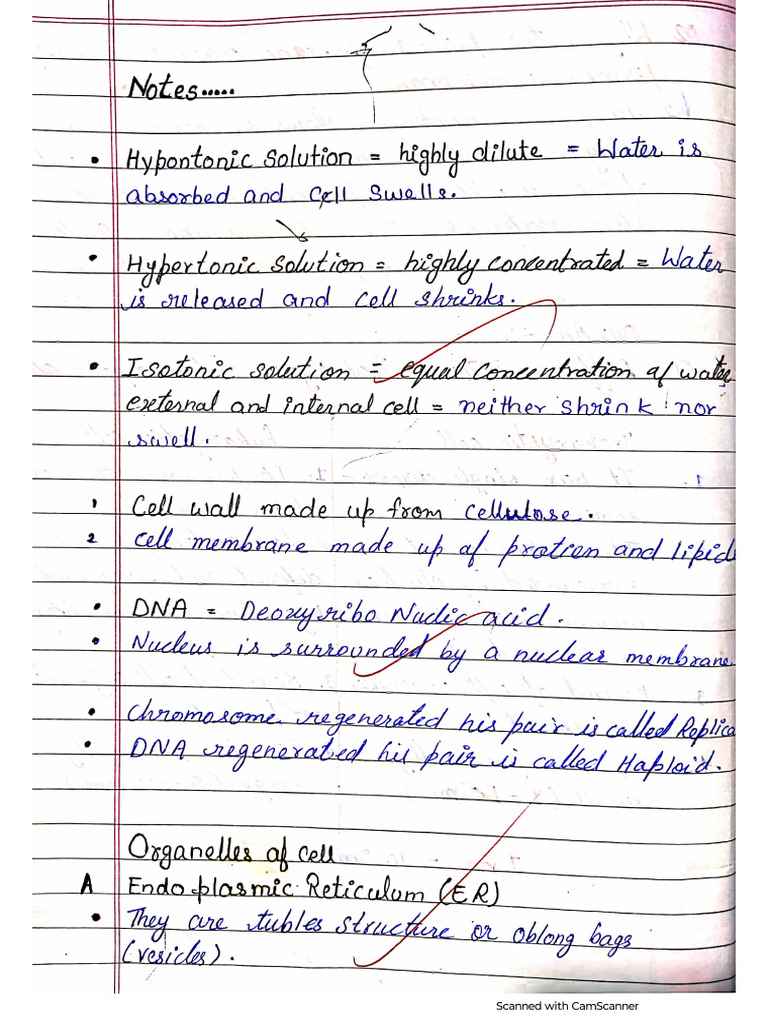 Notes.....
• Hypontonic Solution = highly dilute = Water is
absorbed and cell swells.
• Hypertonic Solution = highly concentrated = Water
is released and cell shrinks.
• Isotonic solution = equal concentration of water
external and internal cell = neither shrink nor
swell.
1 Cell wall made up from cellulose.
2 cell membrane made up of protien and lipid
• DNA = Deoxyribo Nudic acid.
• Nucleus is surrounded by a nuclear membrane
• Chromosome regenerated his pair is called Replica
• DNA regenerated his pair is called Haploid.
Organelles of cell
A Endoplasmic Reticulum (ER)
• They are tubles structure or oblong bags
(vesicles).
Scanned with CamScanner